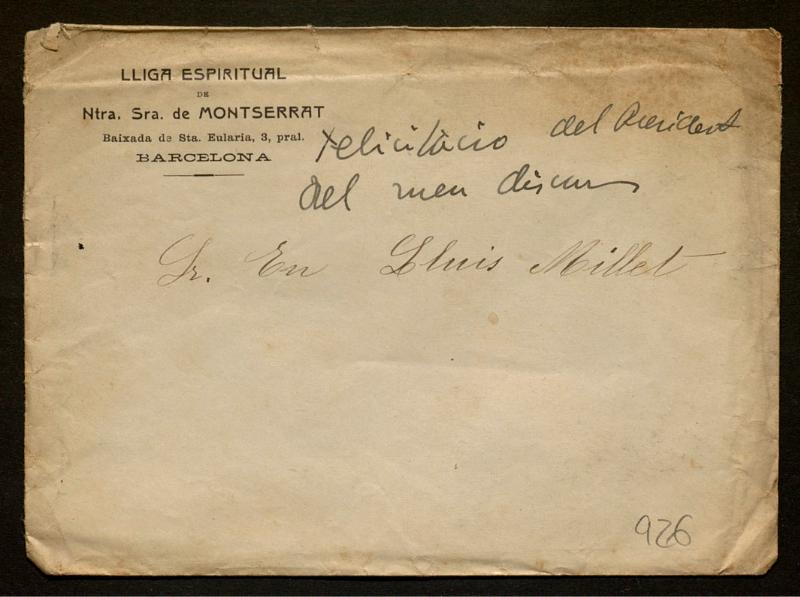 LLIGA ESPIRITUAL
DE
Ntra. Sra. de MONTSERRAT
Baixada de Sta. Eularia, 3, pral.
BARCELONA
felicitàcio del President
del meu discurs
Sr. En Lluis Millet
926